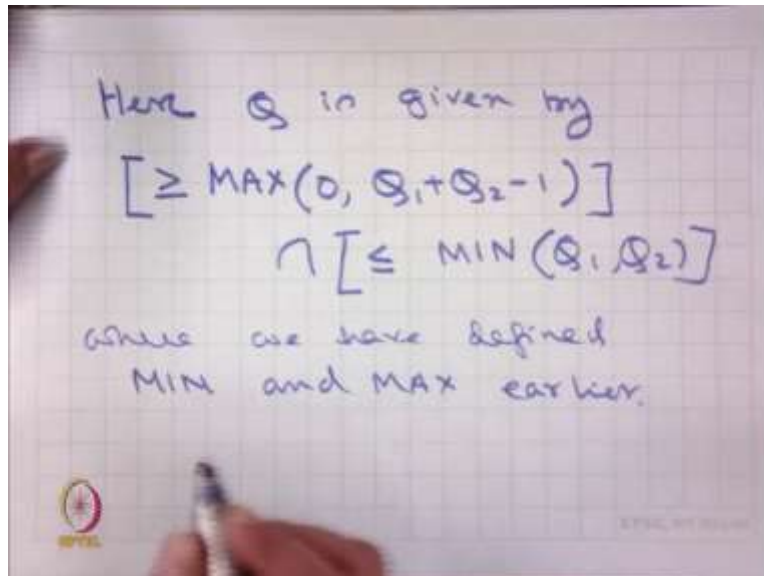 Here Q is given by
[≥ MAX(0, Q₁+Q₂-1)]
∩ [≤ MIN(Q₁, Q₂)]
where we have defined
MIN and MAX earlier.
NPTEL